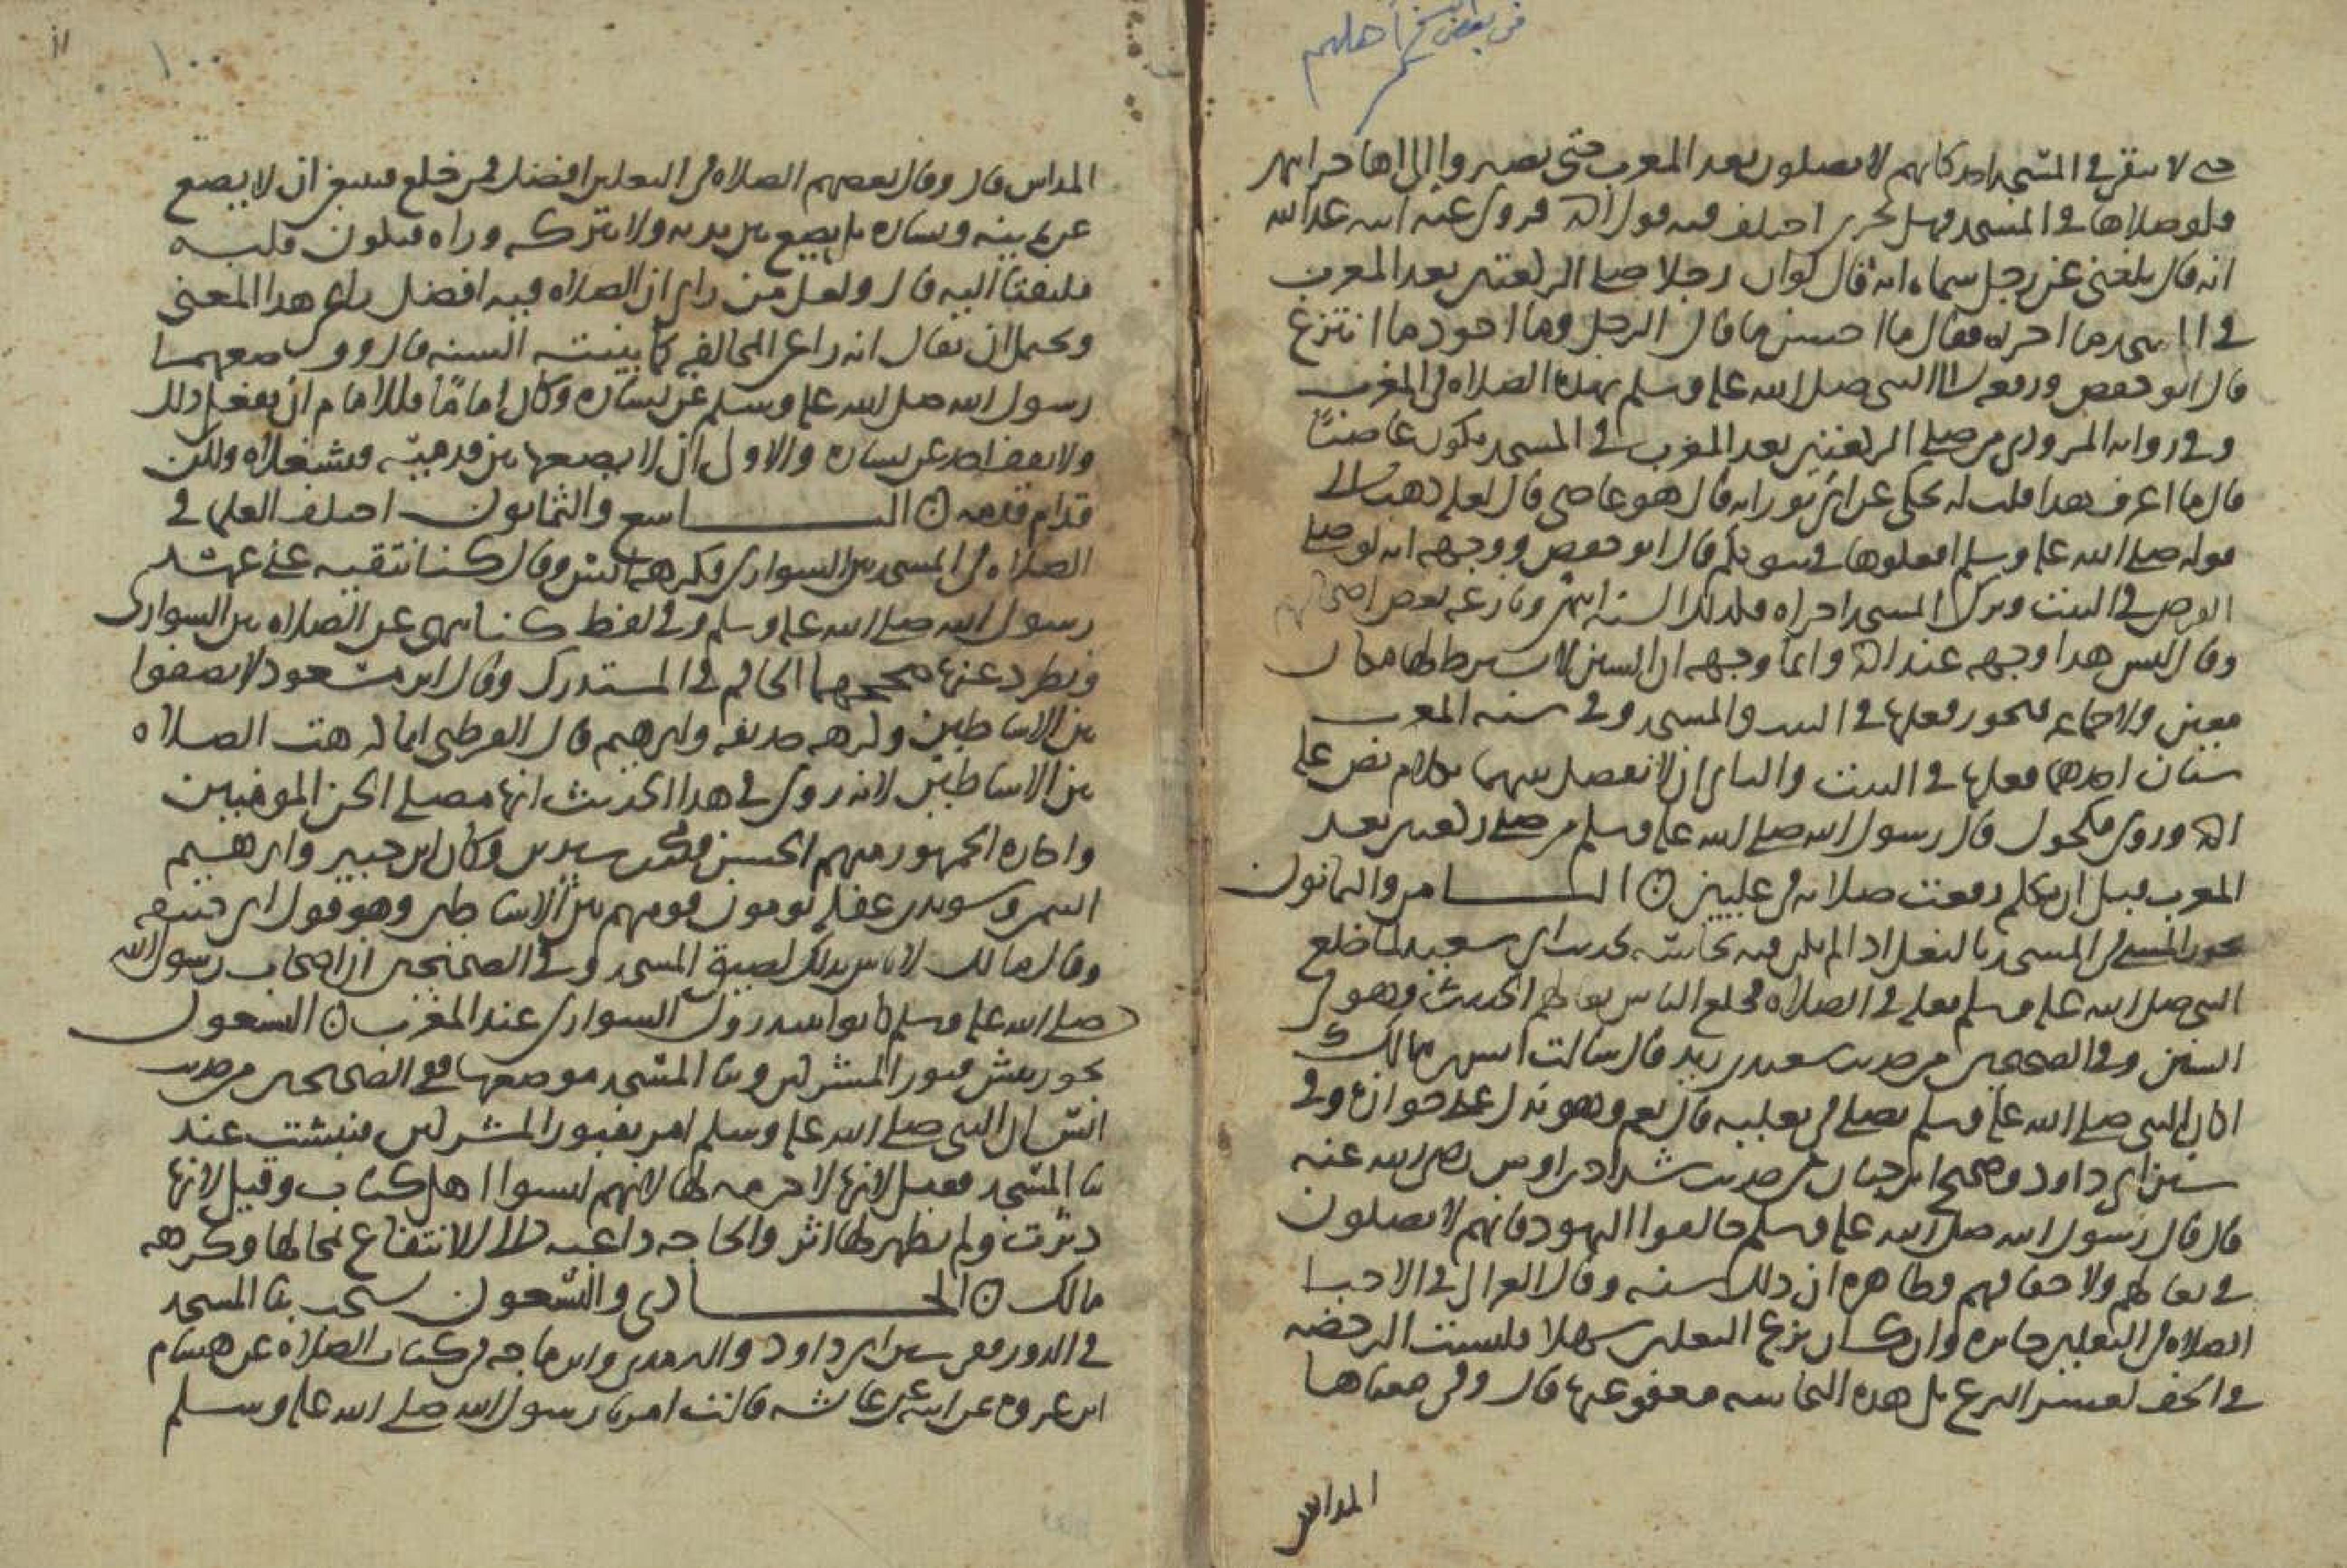 في بعض النسخ أهليهم
حتى لا يبقى في المسجد احد كانهم لا يصلون بعد المغرب حتى يصيروا إلى اهاليهم
فلو صلاها في المسجد فهل تجزي اختلف فيه قول احمد فروى عنه ابنه عبد الله
انه قال بلغني عن رجل سماه انه قال لو ان رجلا صلى الركعتين بعد المغرب
في المسجد ما اجزاه فقال ما احسن ما قال الرجل وما اجود ما انتزع
قال ابو حفص ووجهه امر النبي صلى الله عليه وسلم بهذه الصلاة في
وفي رواية المروذي من صلى الركعتين بعد المغرب في المسجد يكون عاصيًا
قال ما اعرف هذا قلت له يحكى عن ابي ثور انه قال هو عاصي قال لعله ذهب الى
قوله صلى الله عليه وسلم افعلوها في بيوتكم قال ابو حفص ووجهه انه لو صلى
الفرض في البيت وترك المسجد اجزاه فكذلك السنة انتهى ونازعه بعض اصحابهم
وقال ليس هذا وجهه عند احمد وانما وجهه ان السنن لا يشترط لها مكان
معين ولا جماعة فيجوز فعلها في البيت والمسجد وفي سنة المغرب
سنتان احدهما فعلها في البيت والثاني ان لا يفصل بينهما بكلام نص عليه
احمد وروى مكحول قال رسول الله صلى الله عليه وسلم من صلى ركعتين بعد
المغرب قبل ان يتكلم رفعت صلاته في عليين ۞ الثامن والثمانون
يجوز المشي في المسجد بالنعل اذا لم يكن فيه نجاسة لحديث ابي سعيد لما خلع
النبي صلى الله عليه وسلم نعله في الصلاة فخلع الناس نعالهم الحديث وهو في
السنن وفي الصحيحين من حديث سعيد بن يزيد قال سالت انس بن مالك
اكان النبي صلى الله عليه وسلم يصلي في نعليه قال نعم وهو يدل على جوازه وفي
سنن ابي داود وصحيح ابن حبان من حديث شداد بن اوس رضي الله عنه
قال قال رسول الله صلى الله عليه وسلم خالفوا اليهود فانهم لا يصلون
في نعالهم ولا خفافهم وظاهره ان ذلك سنه وقال الغزالي في الاحيا
الصلاة في النعلين جايزه وان كان نزع النعلين سهلا فليست الرخصه
في الخف لعسر النزع بل هذه النجاسه معفو عنها قال وفي معناها
المداس
١٠٠
المداس قال وقال بعضهم الصلاة في النعلين افضل فمن خلع فينبغي ان لا يضع
عن يمينه ويساره بل يضع بين يديه ولا يتركه وراه فيكون قلبه
ملتفتا اليه قال ولعل من راى ان الصلاة فيه افضل راعى هذا المعنى
ويحتمل ان يقال انه راعى المخالفة كما بينته السنه قال ووضعهما
رسول الله صلى الله عليه وسلم عن يساره وكان إمامًا فللامام ان يفعل ذلك
ولا يقف احد عن يساره والاولى ان لا يضعها بين قدميه فيشغلاه ولكن
قدام قدميه ۞ التاسع والثمانون اختلف العلما في
الصلاة في المسجد بين السواري فكرهه انس وقال كنا نتقيه على عهد
رسول الله صلى الله عليه وسلم وفي لفظ كنا ننهى عن الصلاة بين السواري
ونطرد عنها صححهما الحاكم في المستدرك وقال ابن مسعود لا تصفوا
بين الاساطين وكرهه حذيفه وابرهيم قال القرطبي انما كرهت الصلاة
بين الاساطين لانه روي في هذا الحديث انها مصلى الجن المومنين
واجازه الجمهور منهم الحسن ومحمد بن سيرين وكان ابن جبير وابرهيم
التيمي وسويد بن غفله يومون قومهم بين الاساطين وهو قول ابي حنيفه
وقال مالك لا باس بذلك لضيق المسجد وفي الصحيحين ان اصحاب رسول الله
صلى الله عليه وسلم كانوا يبتدرون السواري عند المغرب ۞ التسعون
يجوز نبش قبور المشركين وبنا المسجد موضعها ففي الصحيحين من حديث
انس ان النبي صلى الله عليه وسلم امر بقبور المشركين فنبشت عند
بنا المسجد فقيل لانها لا حرمه لها لانهم ليسوا اهل كتاب وقيل لانها
دثرت ولم يظهر لها اثر والحاجه داعيه الى الانتفاع بمحالها وكرهه
مالك ۞ الحادي والتسعون يستحب بنا المسجد
في الدور ففي سنن ابي داود والترمذي وابن ماجه في كتاب الصلاة عن هشام
ابن عروة عن ابيه عن عايشه قالت امرنا رسول الله صلى الله عليه وسلم